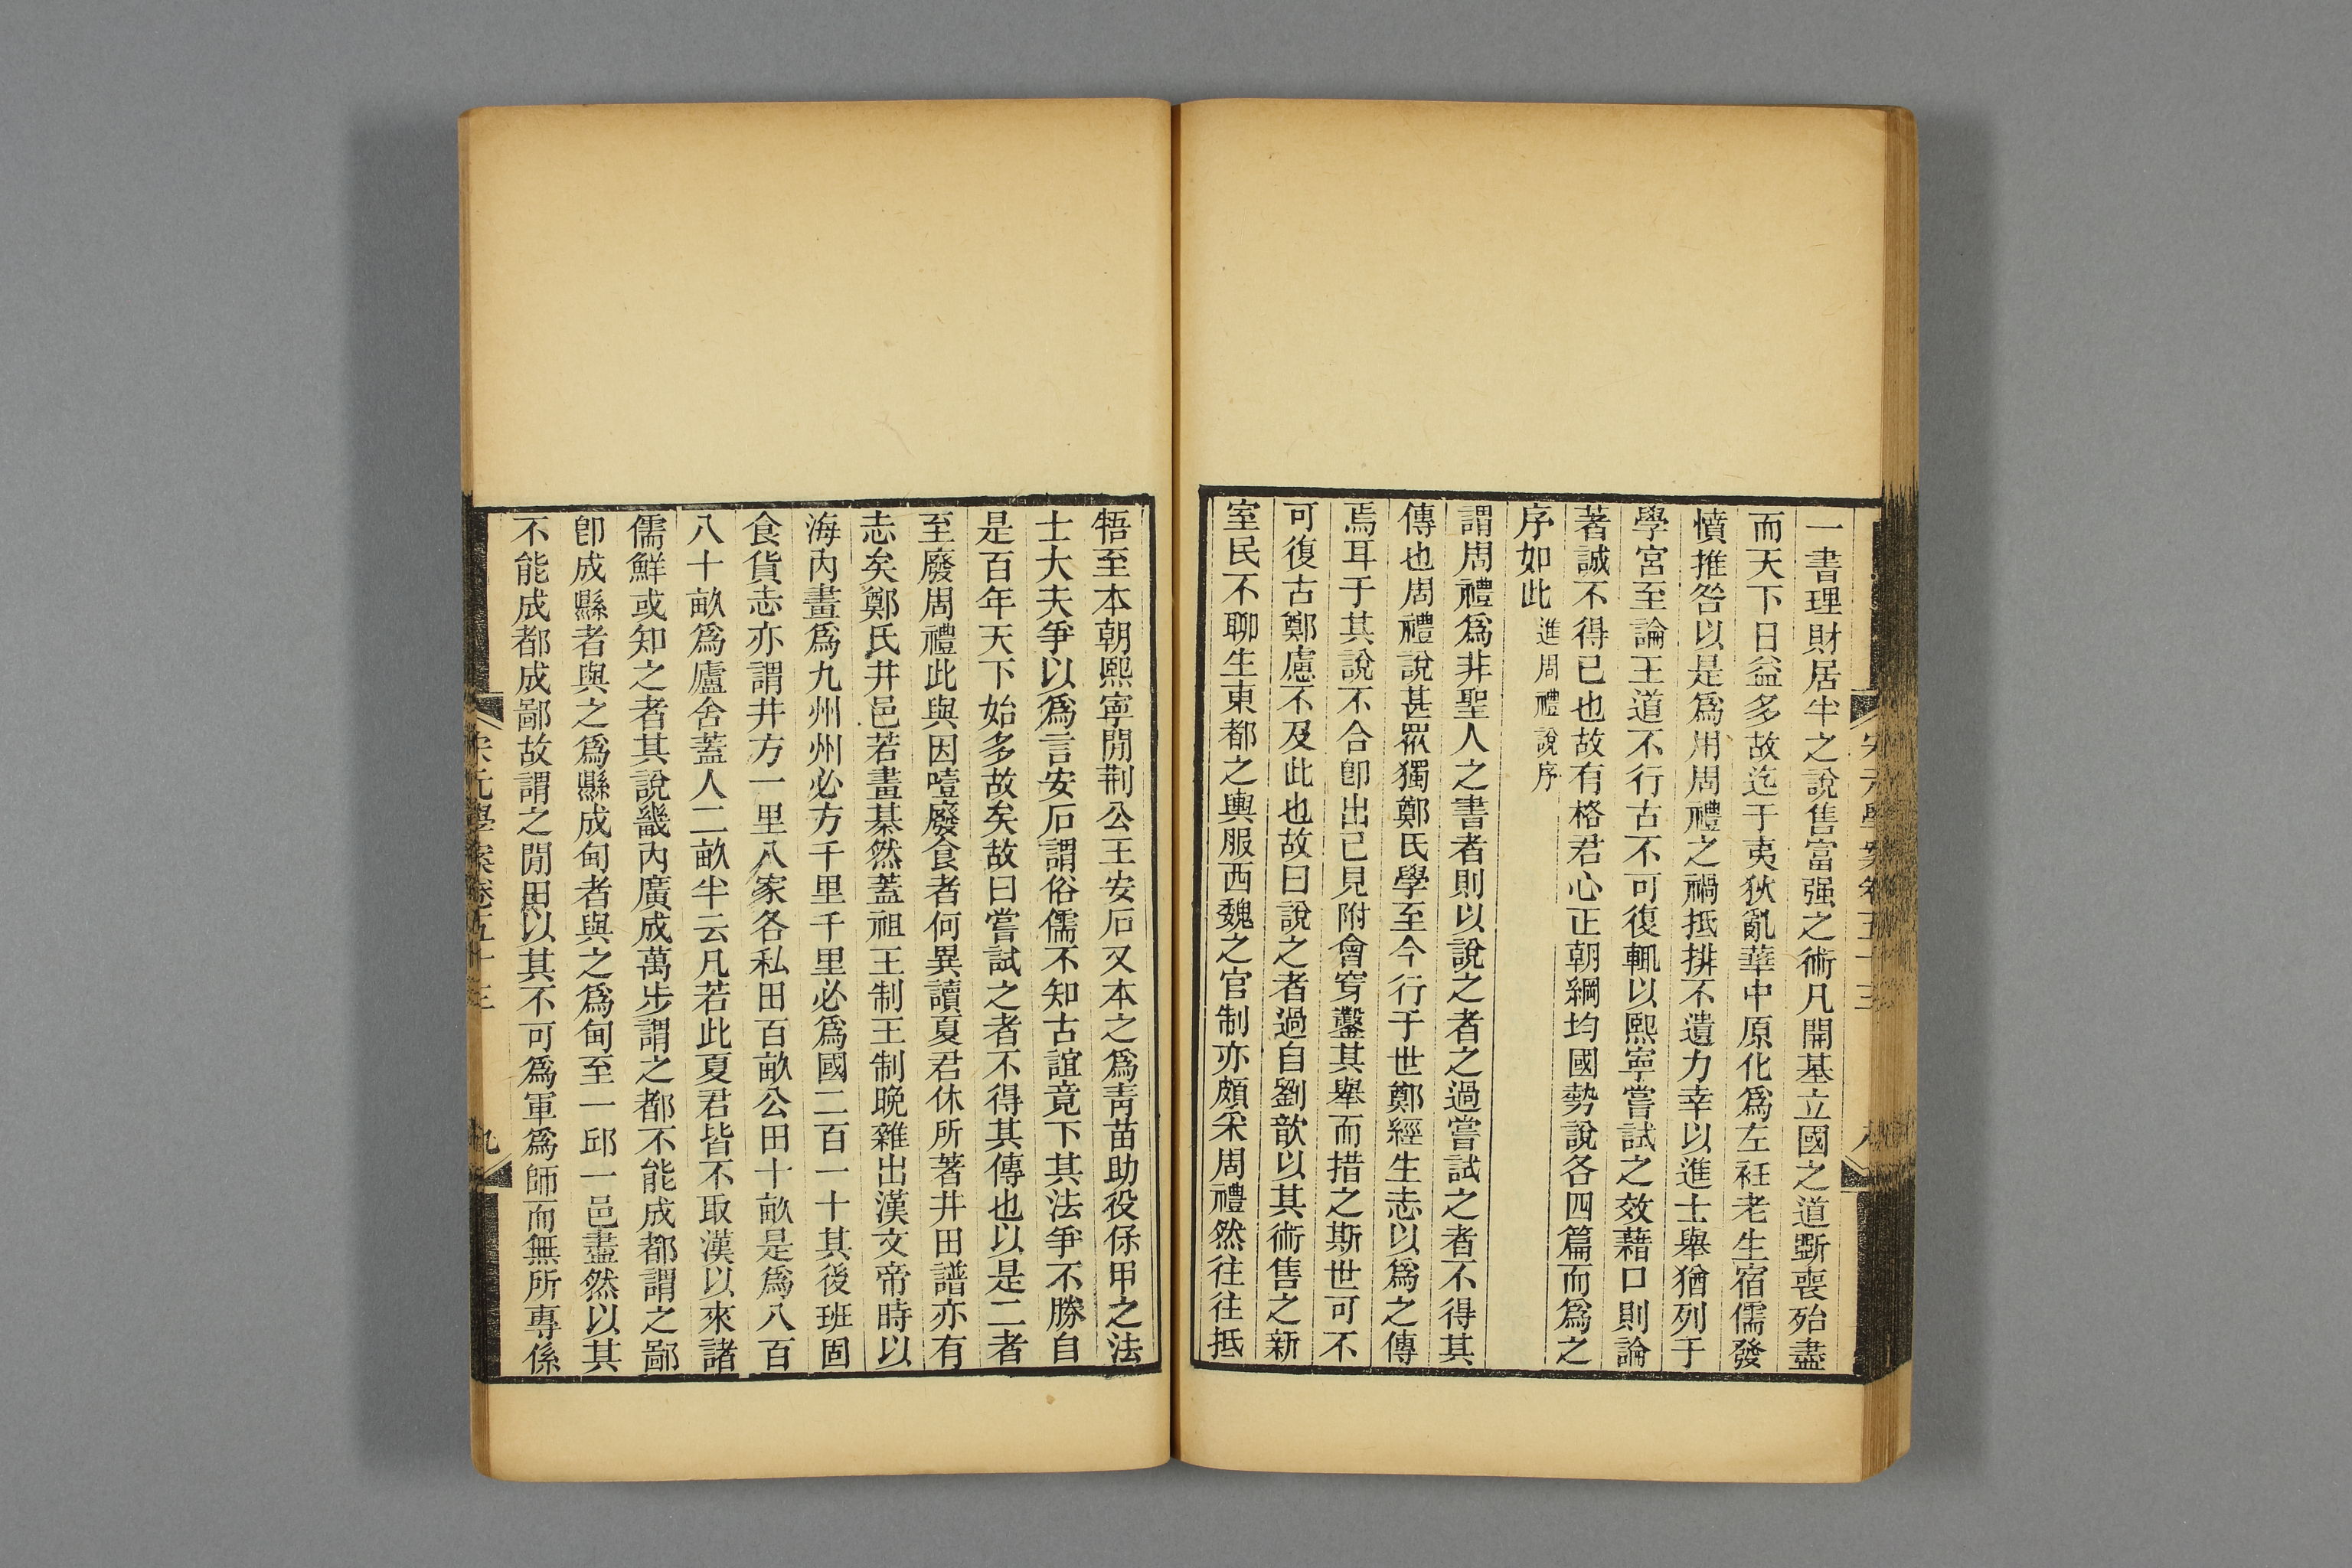 一書理財居半之說售富强之術凡開基立國之道斲喪殆盡
而天下日益多故迄于夷狄亂華中原化爲左衽老生宿儒發
憤推咎以是爲用周禮之禍抵排不遺力幸以進士舉猶列于
學宮至論王道不行古不可復輒以熙寧嘗試之效藉口則論
著誠不得已也故有格君心正朝綱均國勢說各四篇而爲之
序如此進周禮說序
謂周禮爲非聖人之書者則以說之者之過嘗試之者不得其
傳也周禮說甚眾獨鄭氏學至今行于世鄭經生志以爲之傳
焉耳于其說不合卽出已見附會穿鑿其舉而措之斯世可不
可復古鄭慮不及此也故曰說之者過自劉歆以其術售之新
室民不聊生東都之輿服西魏之官制亦頗采周禮然往往抵
牾至本朝熙寧閒荆公王安石又本之爲靑苗助役保甲之法
士大夫爭以爲言安石謂俗儒不知古誼竟下其法爭不勝自
是百年天下始多故矣故曰嘗試之者不得其傳也以是二者
至廢周禮此與因噎廢食者何異讀夏君休所著井田譜亦有
志矣鄭氏井邑若畫棊然蓋祖王制王制晚雜出漢文帝時以
海內畫爲九州州必方千里千里必爲國二百一十其後班固
食貨志亦謂井方一里八家各私田百畝公田十畝是爲八百
八十畝爲廬舍蓋人二畝半云凡若此夏君皆不取漢以來諸
儒鮮或知之者其說畿內廣成萬步謂之都不能成都謂之鄙
卽成縣者與之爲縣成甸者與之爲甸至一邱一邑盡然以其
不能成都成鄙故謂之閒田以其不可爲軍爲師而無所專係
宋元學案卷五十三
九